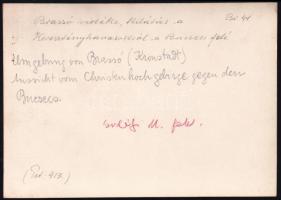 Brassó vidéke, kilátás a Br 41
Keresztényhavasról a Bucsecs felé
Umgebung von Brassó (Kronstadt)
Aussicht vom Christen hochgebirge gegen den
Bucsecs.
M. felv.